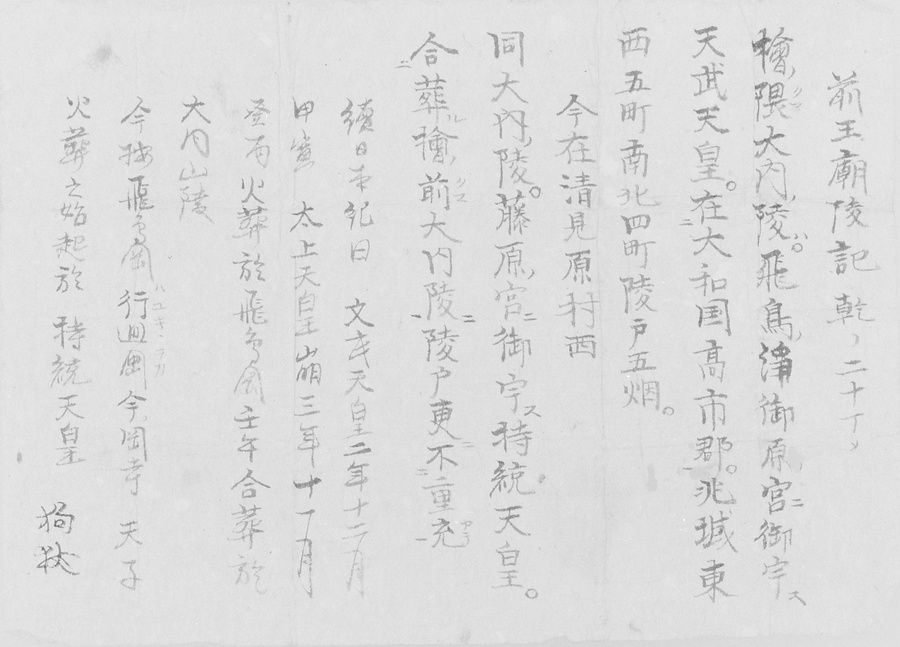 前王廟陵記 乾ノ二十丁ノ
檜ノ隈クマ大内ノ陵ハ。飛鳥ノ浄御原ノ宮ニ御宇ス
天武天皇。在ニ大和国高市郡。兆域東
西五町南北四町陵戸五烟。
今在清見原村西
同大内ノ陵。藤原ノ宮ニ御宇ス持統天皇。
合ニ葬ル檜ノ前クマ大内陵ニ陵戸更ニ不ニ重充アテ
續日本紀曰 文武天皇二年十二月
甲寅 太上天皇崩三年十一月
癸丙火葬於飛鳥岡壬午合葬於
大内山陵
今按飛鳥岡行廻岡今ノ岡寺 天子
火葬之始起於 持統天皇